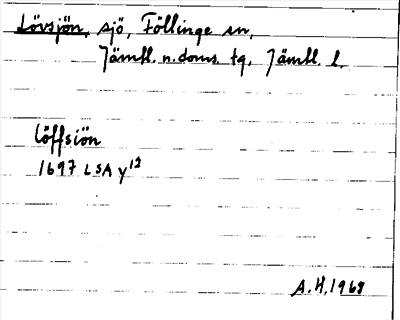 Lövsjön, sjö, Föllinge sn,
Jämtl. n. doms. tg, Jämtl. l.
Löffsiön
1697 LSA Y12
A.H. 1968